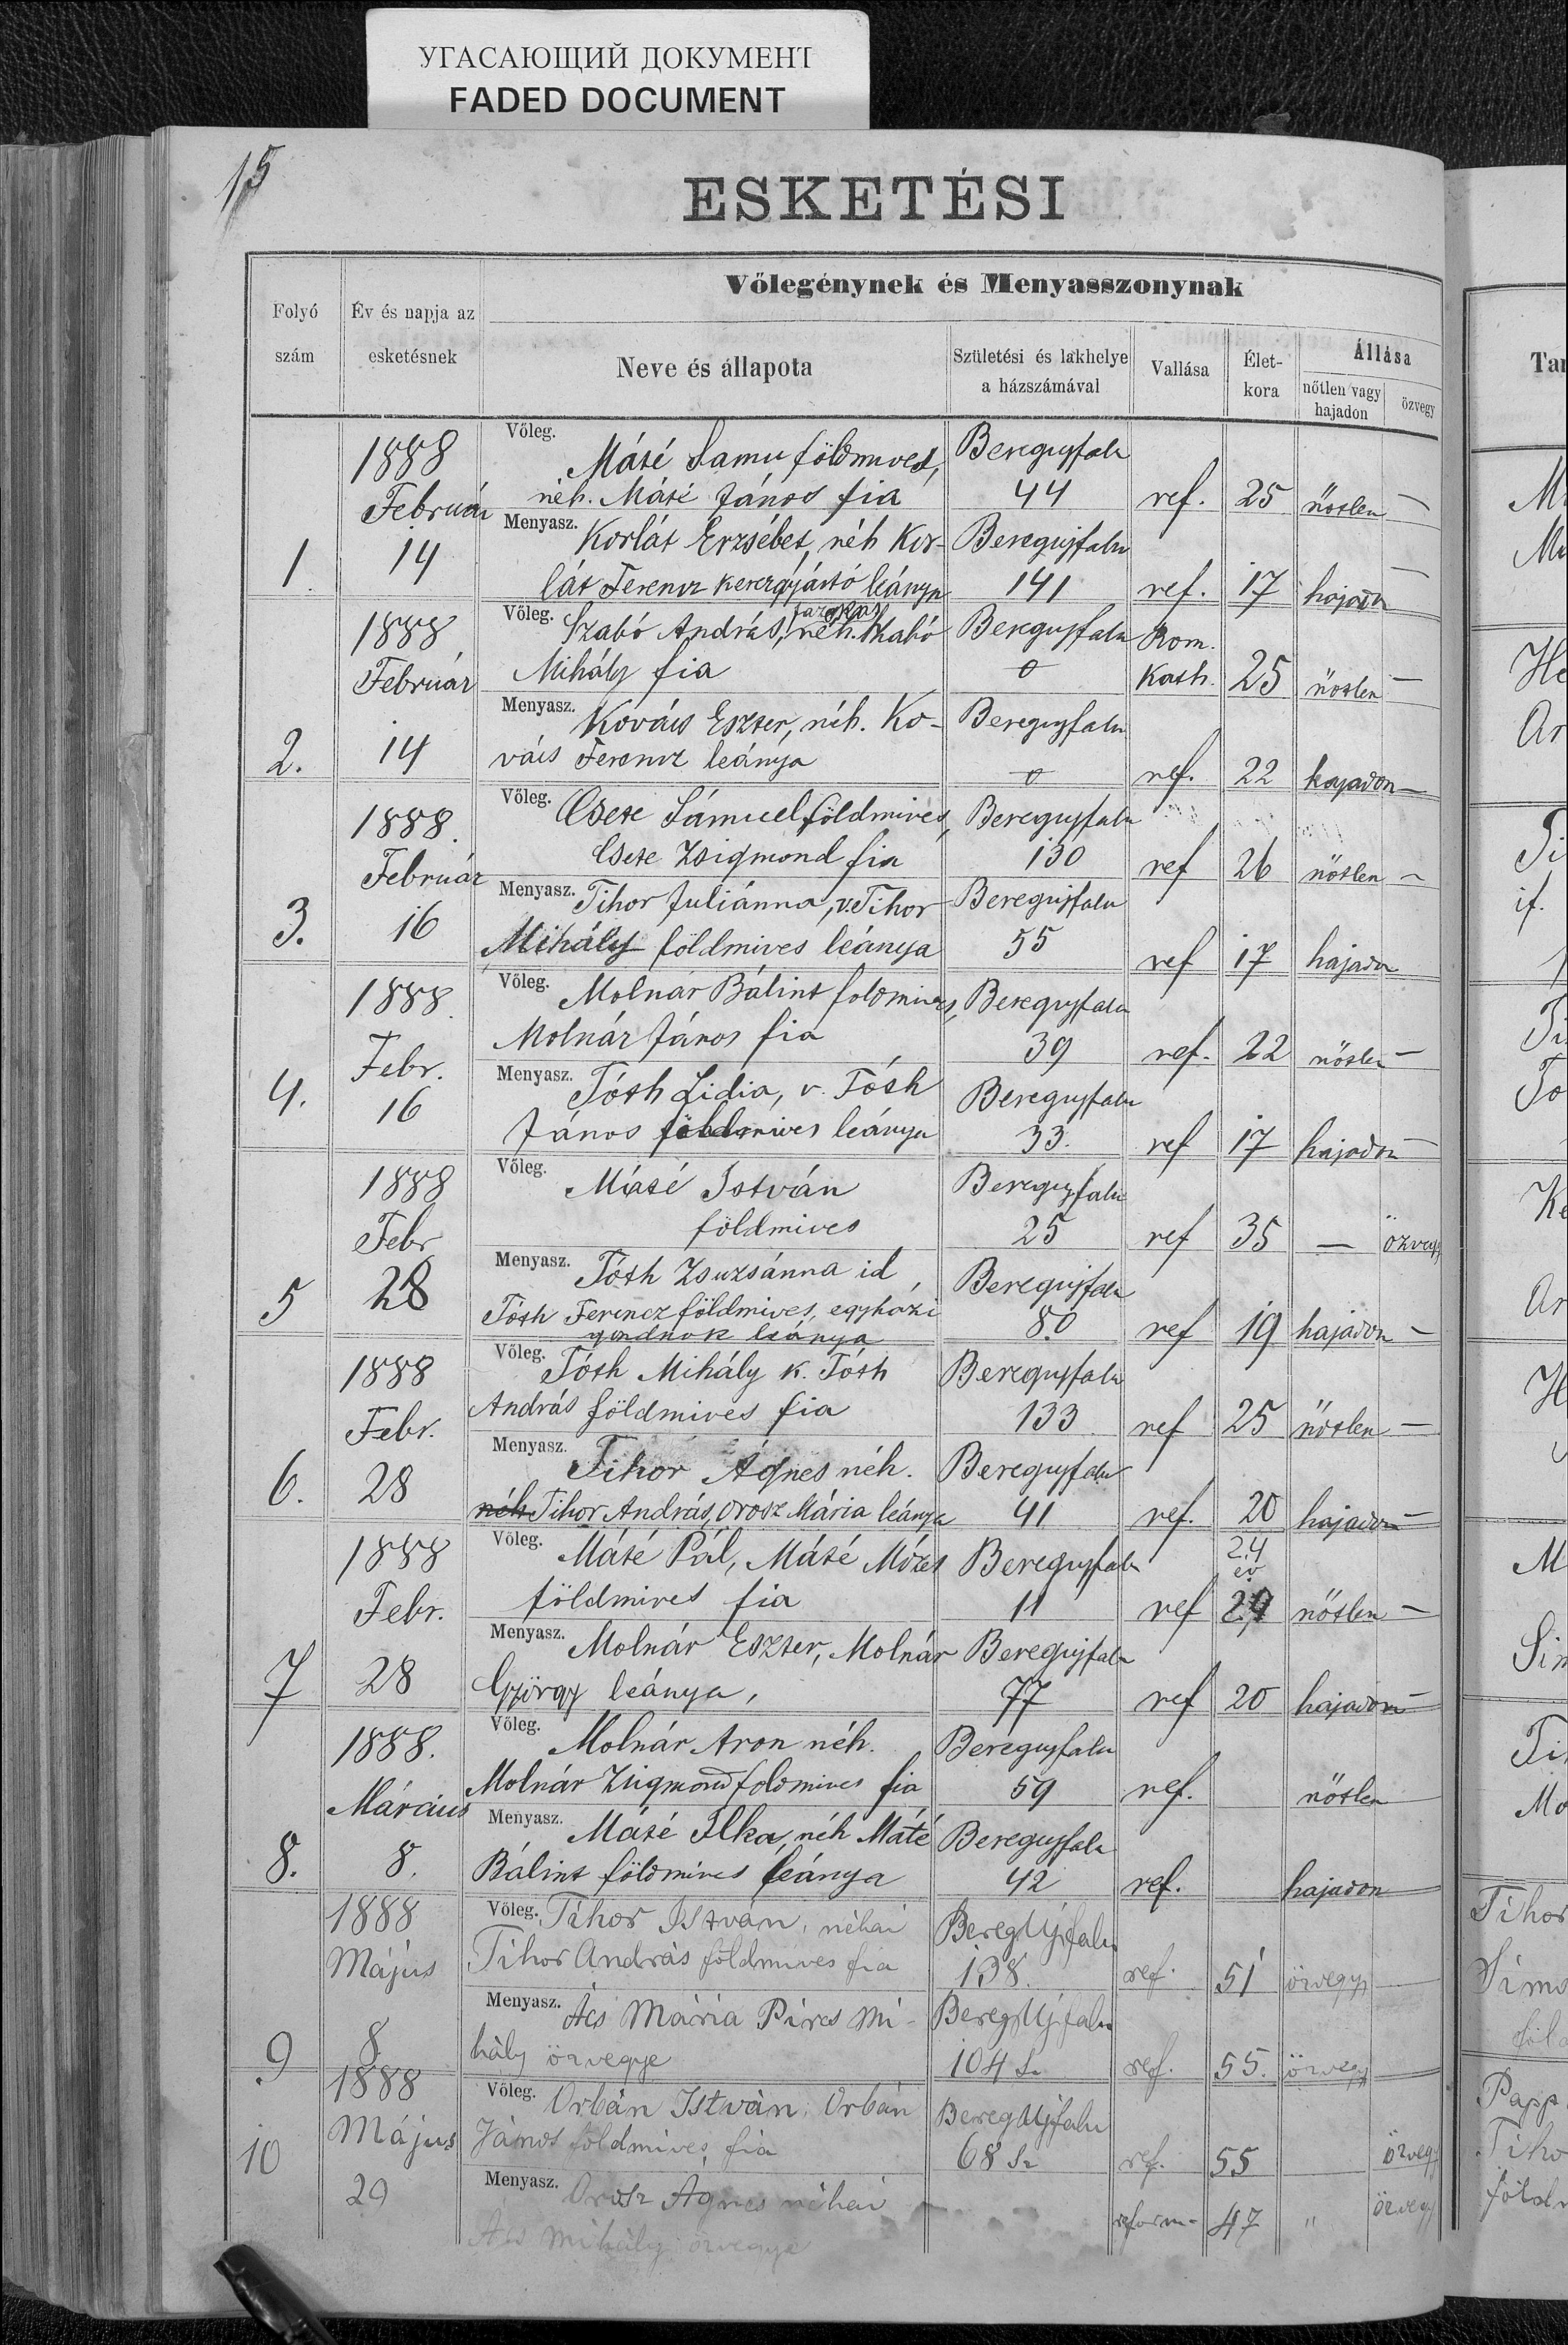 УГАСАЮЩИЙ ДОКУМЕНТ
FADED DOCUMENT
15
ESKETÉSI
Folyó szám
Év és napja az esketésnek
Vőlegénynek és Menyasszonynak
Neve és állapota
Születési és lakhelye a házszámával
Vallása
Élet-kora
Állása
nőtlen vagy hajadon
özvegy
1.
1888 Február 14
Vőleg. Máté Samu földmives, Beregujfalu
néh. Máté János fia 44 ref. 25 nőtlen —
Menyasz. Korlát Erzsébet, néh Kor- Beregujfalu
lát Ferencz kerékgyártó leánya 141 ref. 17 hajadon —
2.
1888 Február 14
Vőleg. Szabó András, néh. Szabó Beregujfalu Rom.
Mihály fia 0 Kath. 25 nőtlen —
Menyasz. Kovács Eszter, néh. Ko- Beregujfalu
vács Ferencz leánya 0 ref. 22 hajadon —
3.
1888. Február 16
Vőleg. Csete Sámuel földmives, Beregujfalu
Csete Zsigmond fia 130 ref 26 nőtlen –
Menyasz. Tihor Juliánna, v. Tihor Beregujfalu
Mihály földmives leánya 55 ref 17 hajadon
4.
1888. Febr. 16
Vőleg. Molnár Bálint földmives, Beregujfalu
Molnár János fia 39 ref. 22 nőtlen —
Menyasz. Tóth Lidia, v. Tóth Beregujfalu
János földmives leánya 33. ref 17 hajadon —
5
1888 Febr 28
Vőleg. Máté István Beregujfalu
földmives 25 ref 35 — özvegy
Menyasz. Tóth Zsuzsánna id Beregujfalu
Tóth Ferencz földmives, egyházi
gondnok leánya 80 ref 19 hajadon –
6.
1888 Febr. 28
Vőleg. Tóth Mihály k. Tóth Beregujfalu
András földmives fia 133 ref 25 nőtlen —
Menyasz. Tihor Ágnes néh. Beregujfalu
néh Tihor András, Orosz Mária leánya 41 ref. 20 hajadon —
7
1888 Febr. 28
Vőleg. Máté Pál, Máté Mózes Beregujfalu 24 év
földmives fia 11 ref 24 nőtlen —
Menyasz. Molnár Eszter, Molnár Beregujfalu
György leánya, 77 ref 20 hajadon —
8.
1888. Március 8.
Vőleg. Molnár Áron néh. Beregujfalu
Molnár Zsigmond földmives fia 59 ref. nőtlen
Menyasz. Máté Ilka, néh Máté Beregujfalu
Bálint földmives leánya 42 ref. hajadon
9
1888 Május 8
Vőleg. Tihor István, néhai BeregUjfalu
Tihor András földmives fia 138. ref. 51 özvegy —
Menyasz. Ács Mária Pircs Mi- BeregUjfalu
hály özvegye 104 Sz ref. 55. özvegy —
10
1888 Május 29
Vőleg. Orbán István, Orbán BeregUjfalu
János földmives fia 68 Sz ref. 55 özvegy
Menyasz. Orosz Ágnes néhai reform- 47 " özvegy
Ács Mihály özvegye
Tihor
Papp